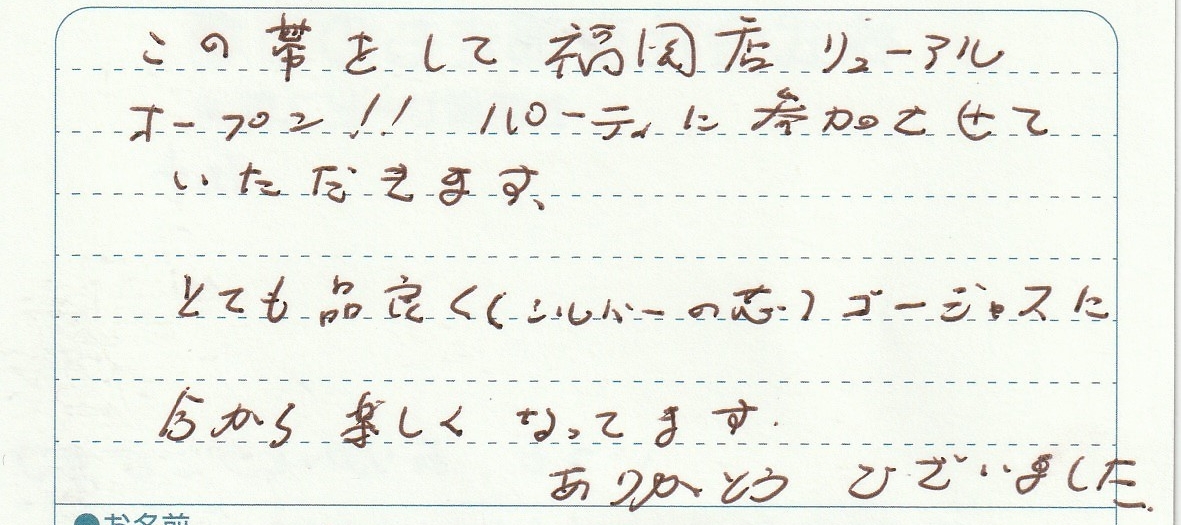 この帯をして 福岡店 リューアル
オープン!! パーティに参加させて
いただきます、
とても品良く(シルバーの芯)ゴージャスに
今から楽しくなってます.
ありがとうございました.
●お名前